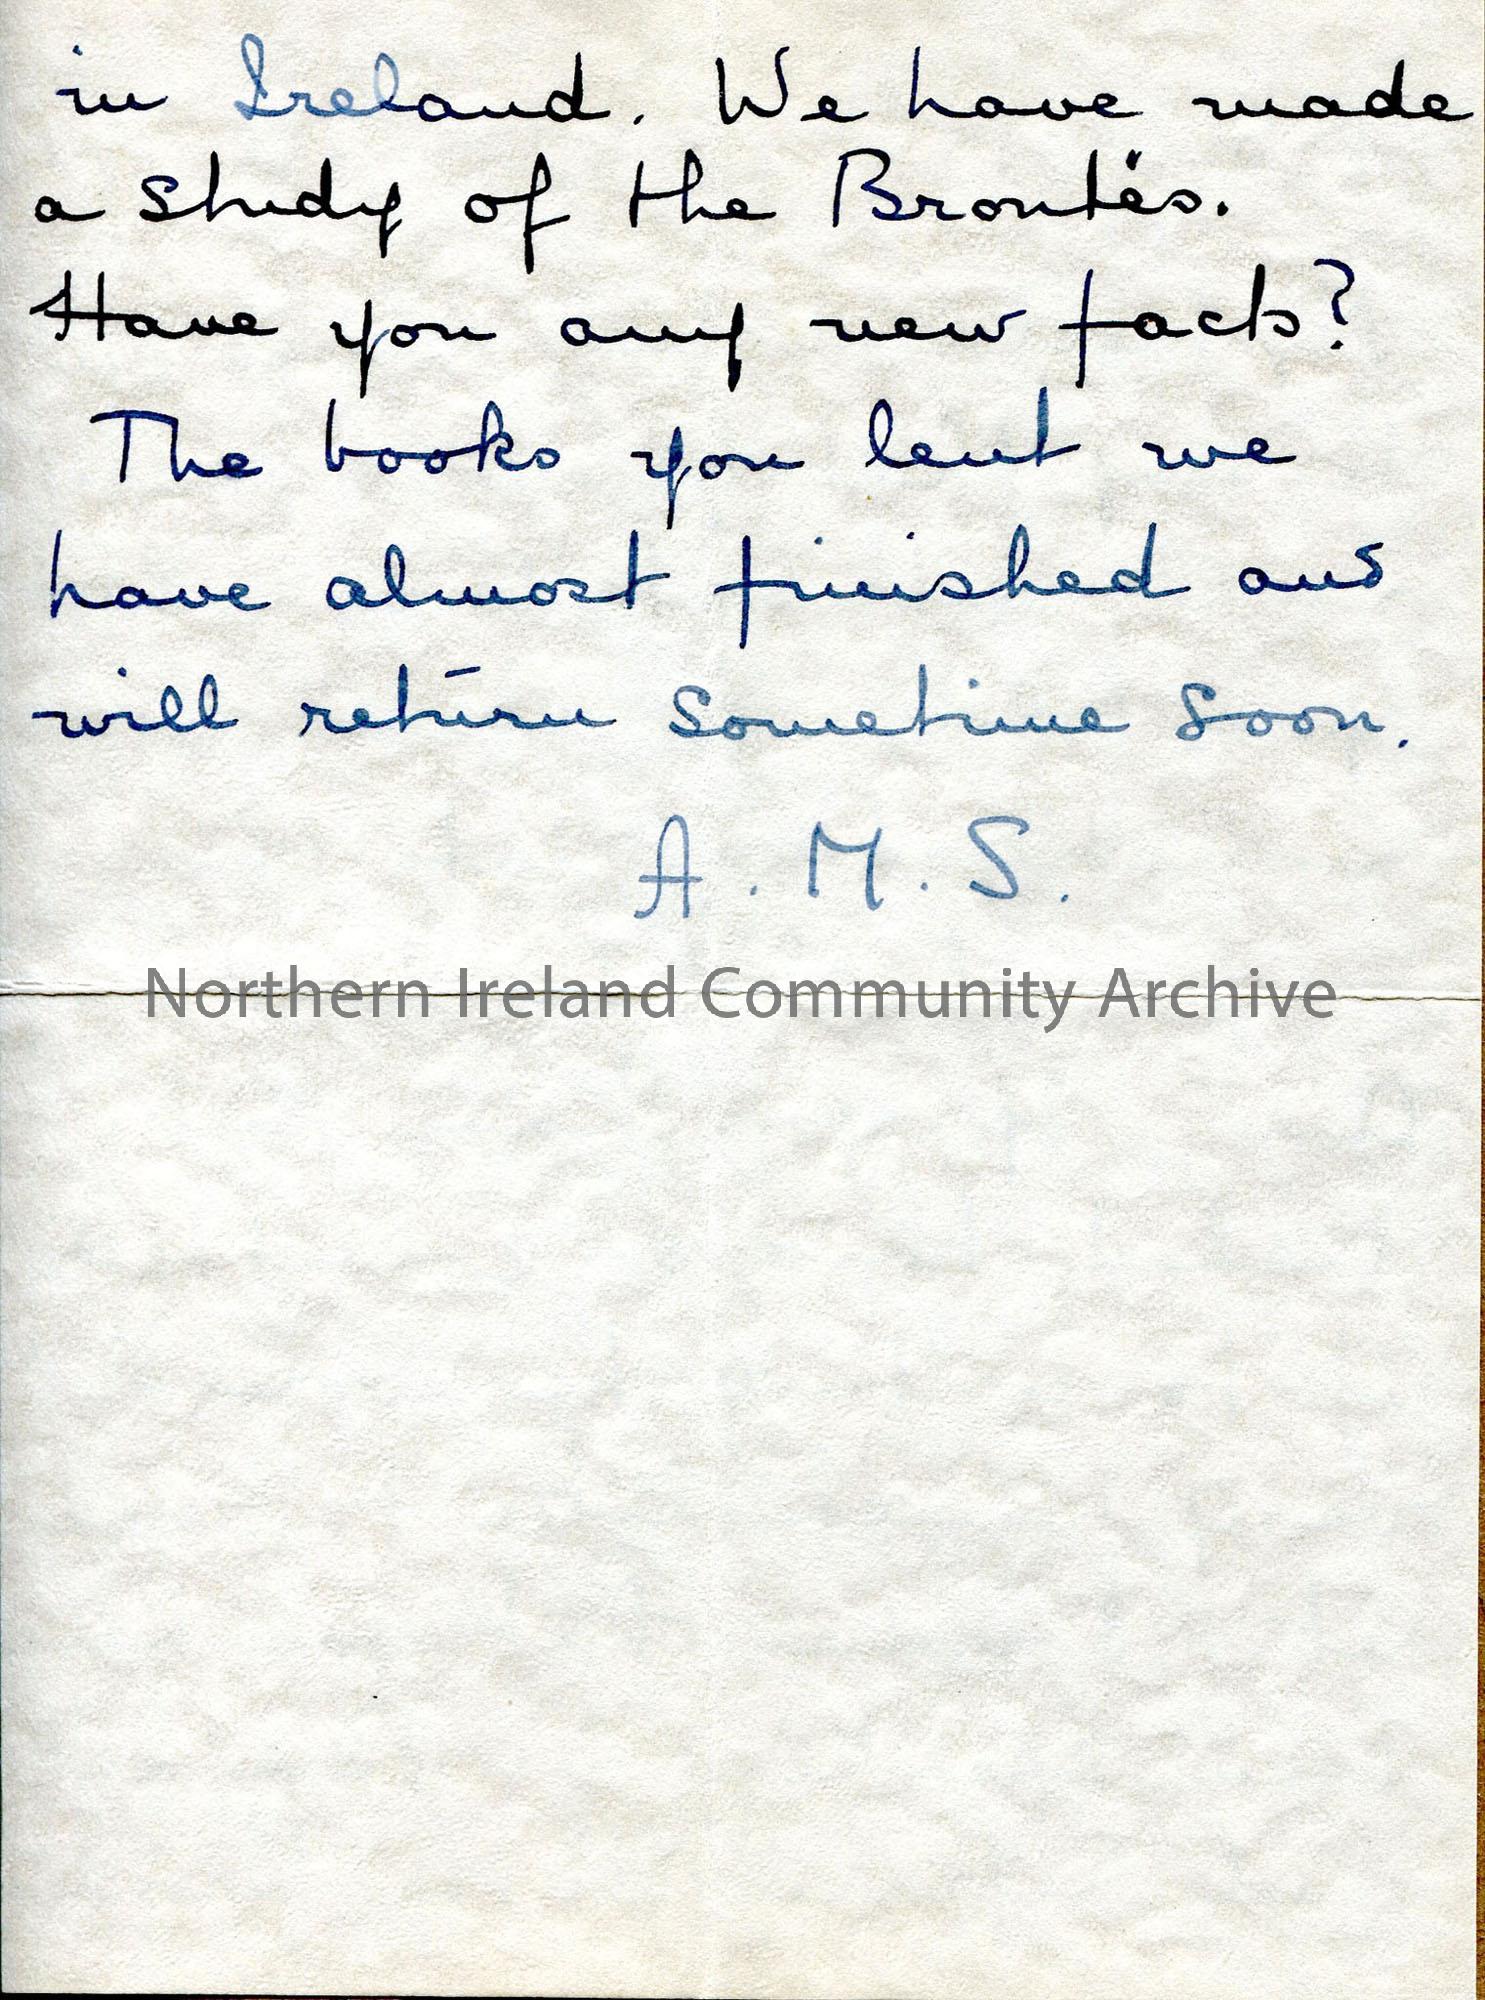 in Ireland. We have made
a study of the Brontës.
Have you any new facts?
The books you lent we
have almost finished and
will return sometime soon.
A. M. S.
Northern Ireland Community Archive